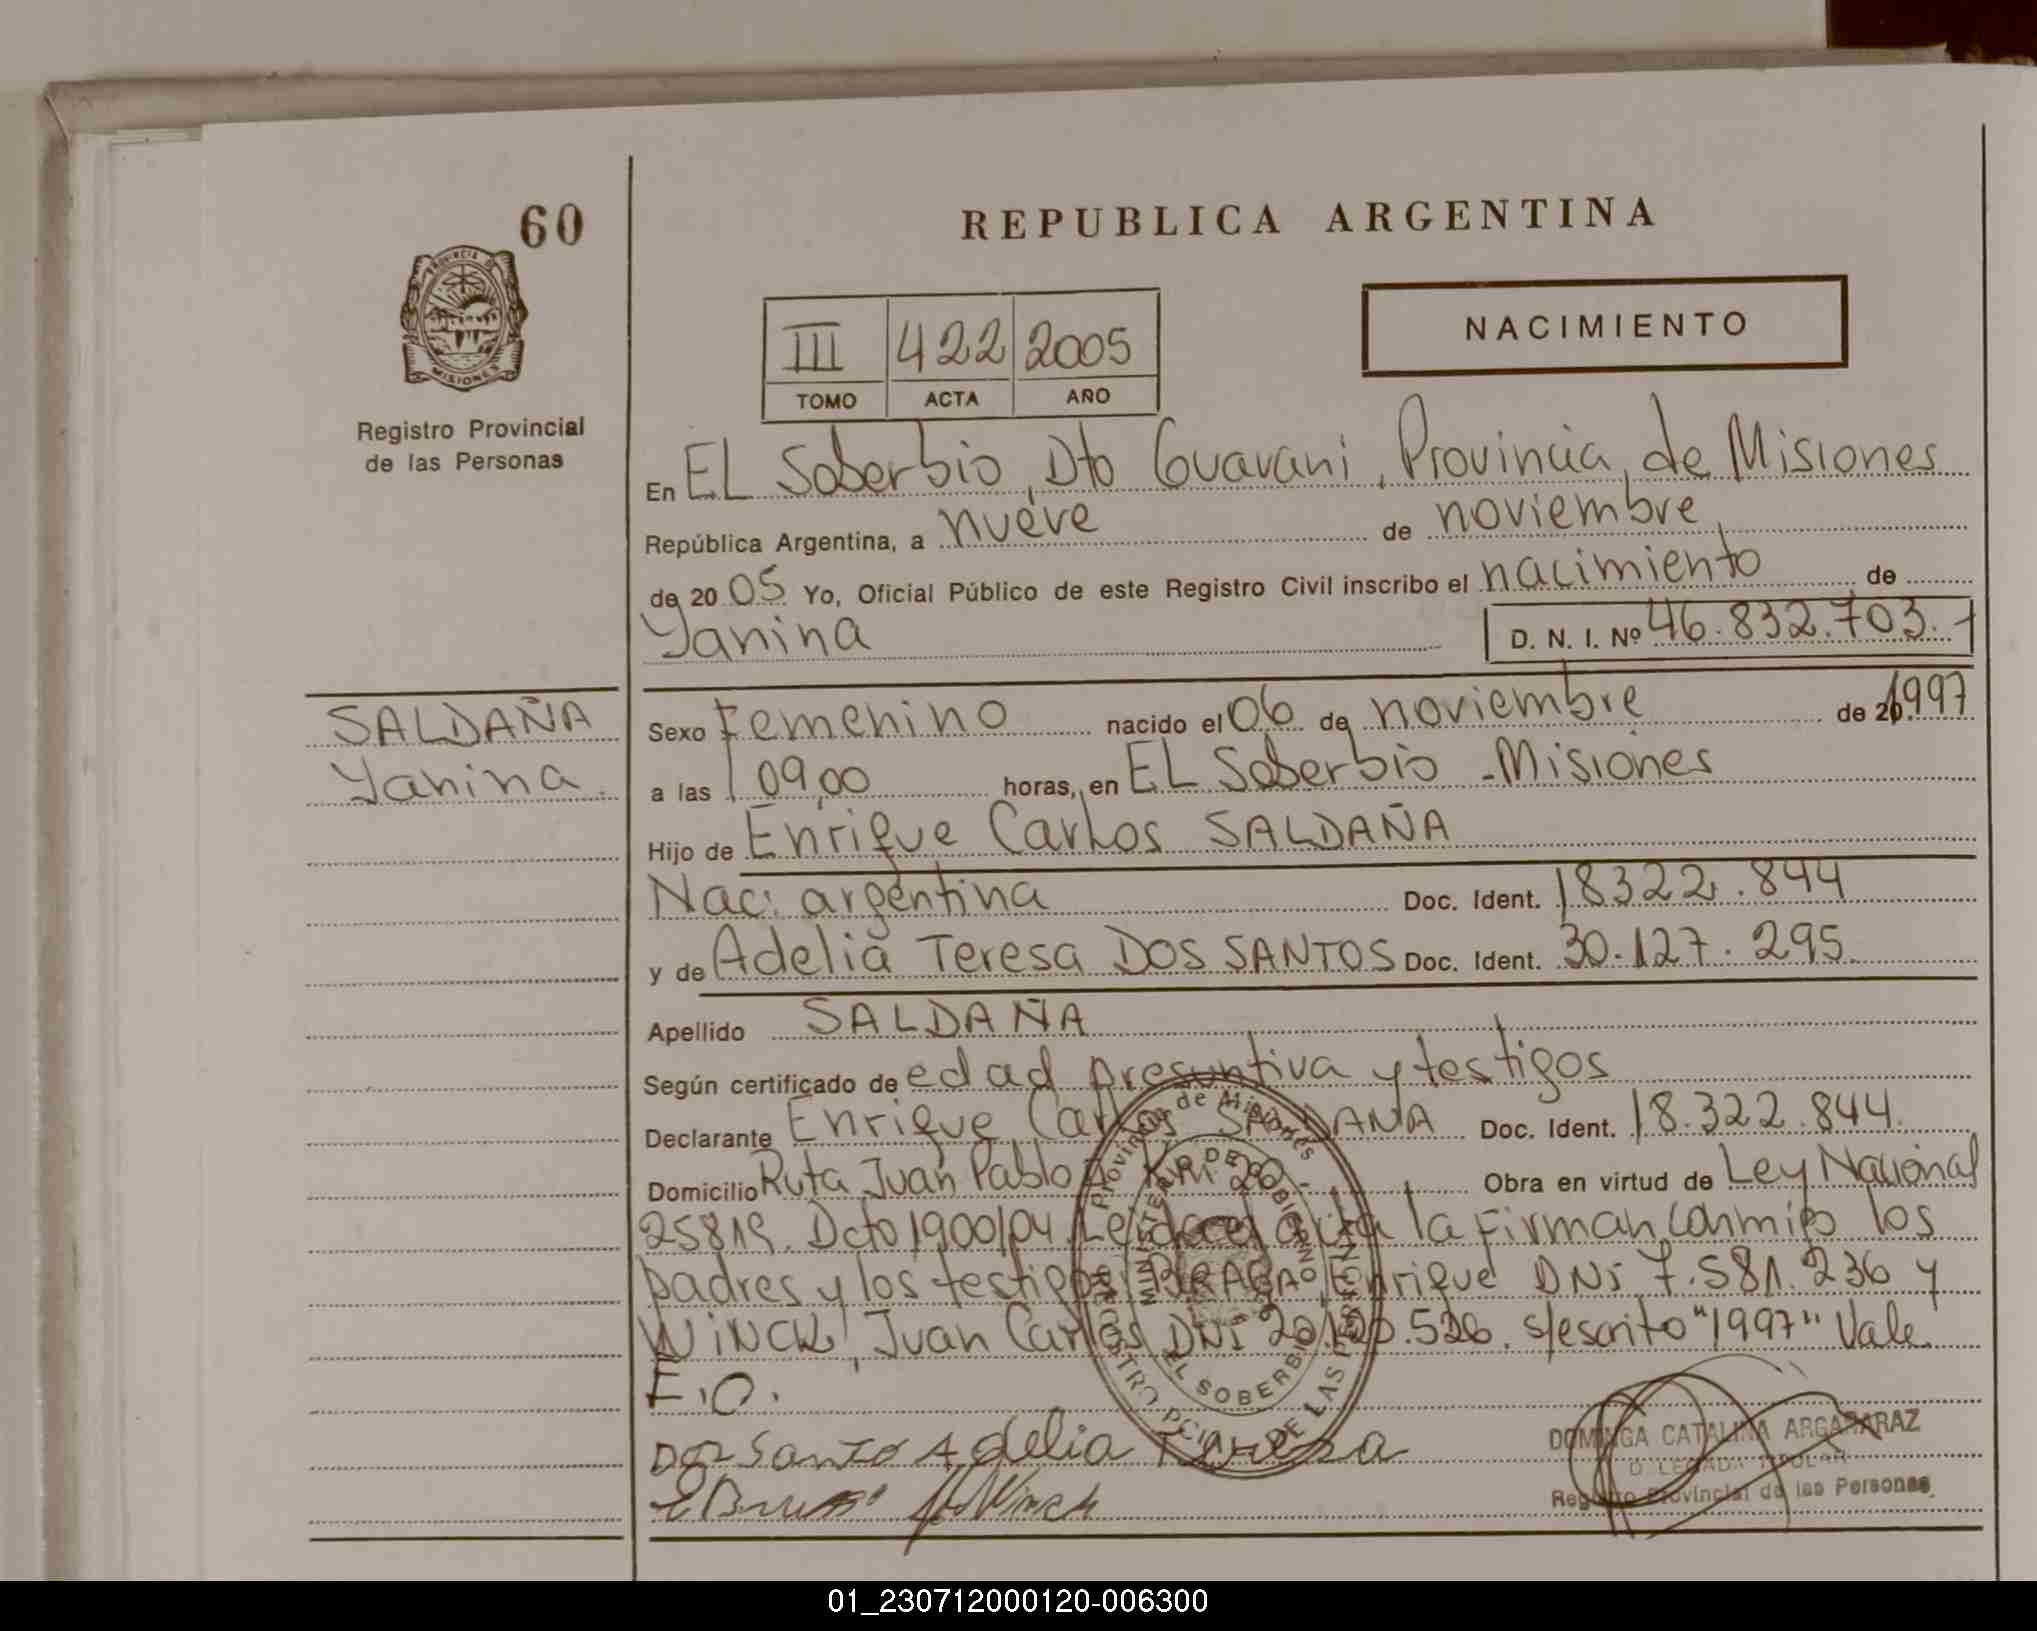 60
REPUBLICA ARGENTINA
PROVINCIA DE
MISIONES
Registro Provincial
de las Personas
NACIMIENTO
III 422 2005
TOMO ACTA AÑO
En EL Soberbio, Dto Guaraní, Provincia de Misiones
República Argentina, a nueve de noviembre,
de 20 05 Yo, Oficial Público de este Registro Civil inscribo el nacimiento de
Yanina D. N. I. Nº 46.832.703.-
SALDAÑA
Yanina.
Sexo Femenino nacido el 06 de noviembre de 20 1997
a las 09,00 horas, en EL Soberbio - Misiones
Hijo de Enrique Carlos SALDAÑA
Nac: argentina Doc. Ident. 18322.844
y de Adelia Teresa DOS SANTOS Doc. Ident. 30.127.295.
Apellido SALDAÑA
Según certificado de edad presuntiva y testigos
Declarante Enrique Carlos SALDAÑA Doc. Ident. 18.322.844.
Domicilio Ruta Juan Pablo II Km. 20.- Obra en virtud de Ley Nacional
25819. Dcto 1900/04. Leída el acta la firman conmigo los
padres y los testigos Enrique DNI 7.581.236 y
WINCK, Juan Carlos DNI .526. s/escrito "1997" Vale
F.O.
Dos Santo Adelia Teresa
Winck
Provincia de Misiones
MINISTERIO DE GOBIERNO
REGISTRO PCIAL. DE LAS PERSONAS
EL SOBERBIO
DOMINGA CATALINA ARGAÑARAZ
DELEGADA TITULAR
Registro Provincial de las Personas
01_230712000120-006300